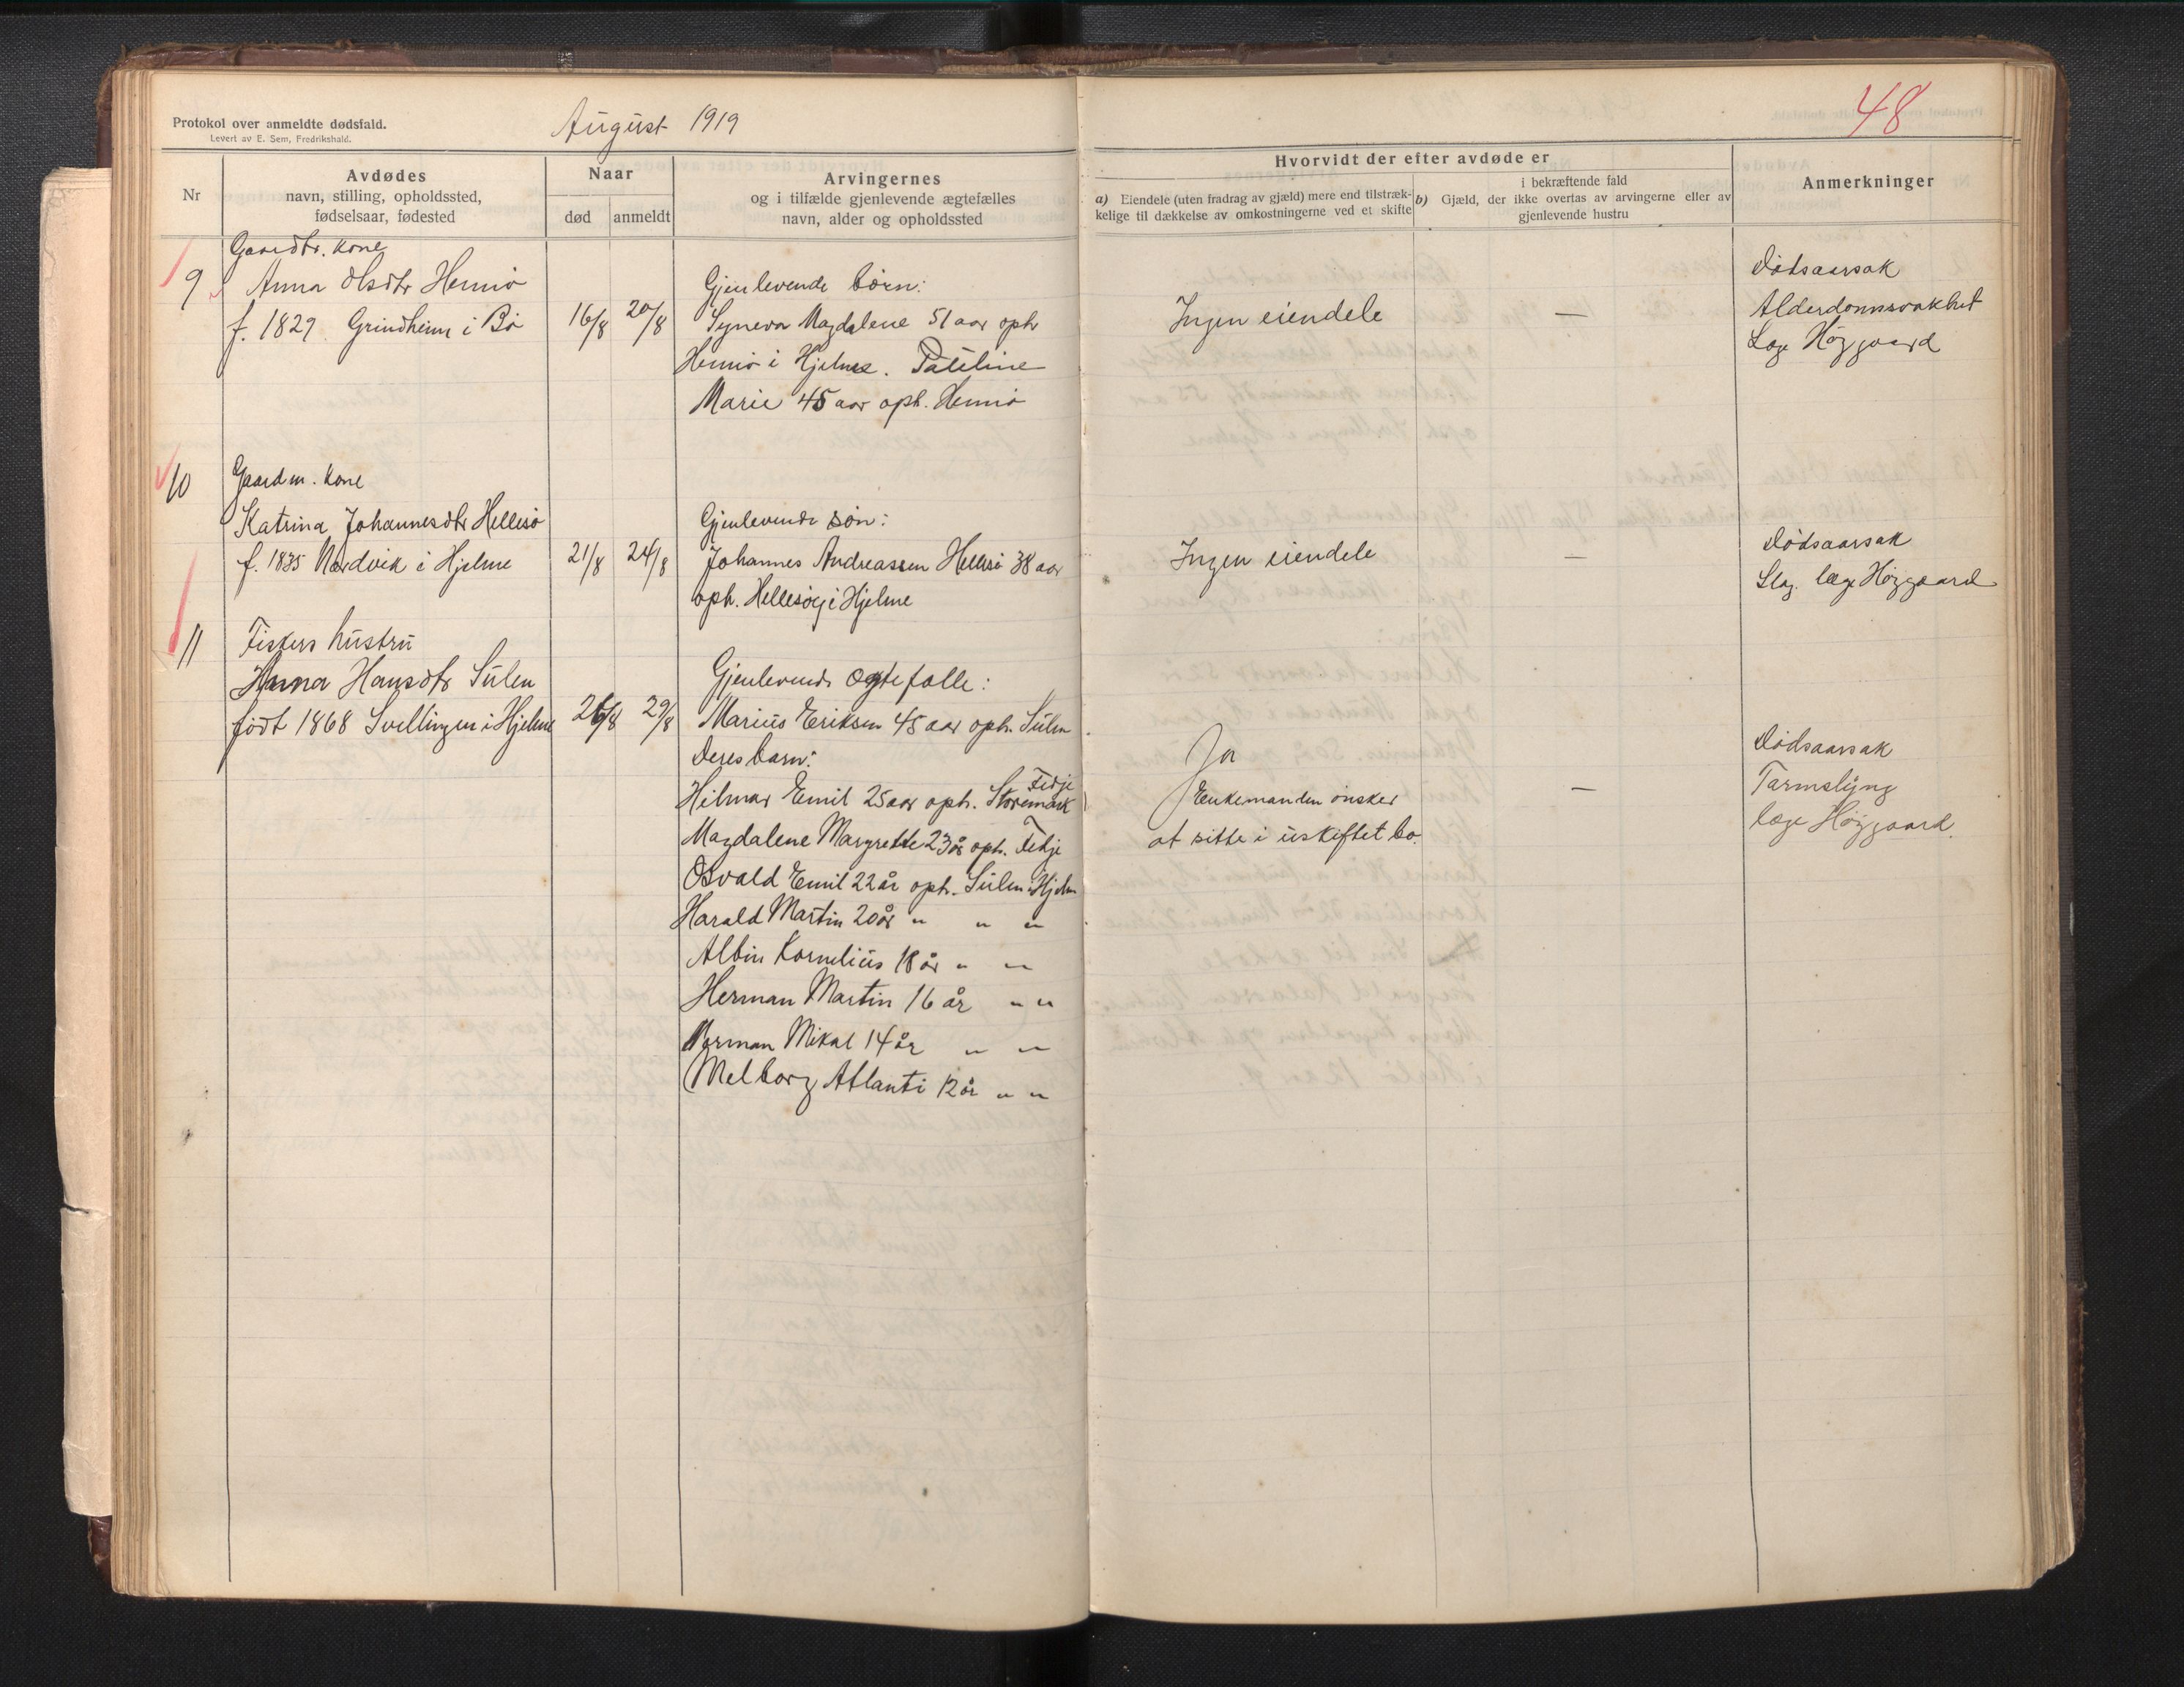 Protokol over anmeldte dødsfald.
Levert av E. Sem, Fredrikshald.
August 1919
48
Nr
Avdødes
navn, stilling, opholdssted,
fødselsaar, fødested
Naar
død
anmeldt
Arvingernes
og i tilfælde gjenlevende ægtefælles
navn, alder og opholdssted
Hvorvidt der efter avdøde er
a) Eiendele (uten fradrag av gjæld) mere end tilstræk-
kelige til dækkelse av omkostningerne ved et skifte
i bekræftende fald
b) Gjæld, der ikke overtas av arvingerne eller av
gjenlevende hustru
Anmerkninger
9
Gaardbr. kone
Anna Olsdtr Hennø
f. 1829 Grindheim i Bø
16/8
20/8
Gjenlevende børn:
Syneva Magdalene 51 aar oph
Hennø i Hjelme. Pauline
Marie 45 aar oph. Hennø
Ingen eiendele
—
Dødsaarsak
Alderdomssvakhet
Læge Høggaard
10
Gaardm. kone
Katrina Johannesdtr Hellesø
f. 1835 Nordvik i Hjelme
21/8
24/8
Gjenlevende søn:
Johannes Andreassen Hellesø 38 aar
oph. Hellesøy i Hjelme
Ingen eiendele
—
Dødsaarsak
Slag. læge Høggaard
11
Fiskers hustru
Anna Hansdtr Sulen
født 1868 Svellingen i Hjelme
26/8
29/8
Gjenlevende ægtefælle:
Marius Eriksen 45 aar oph. Sulen
Deres barn:
Hilmar Emil 25 aar oph. Storemark Fedje
Magdalene Margrethe 23 år oph. Fedje
Osvald Emil 22 år oph. Sulen i Hjelm
Harald Martin 20 år " " "
Albin Kornelius 18 år " "
Herman Martin 16 år " "
Norman Mikal 14 år " "
Melborg Atlanti 12 år " "
Ja
Enkemanden ønsker
at sitte i uskiftet bo.
—
Dødsaarsak
Tarmslyng
læge Høggaard.